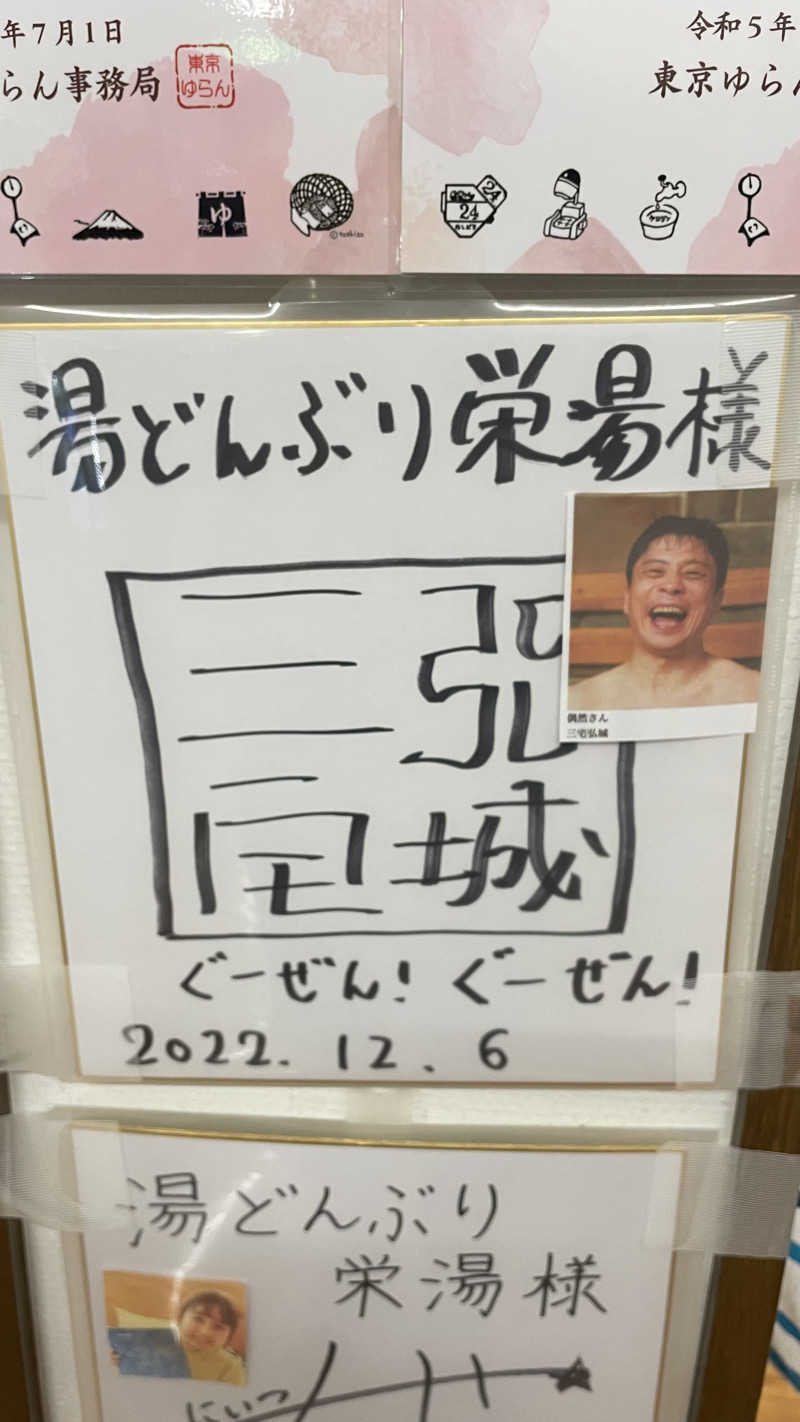 年7月1日
らん事務局
東京
ゆらん
ゆ
©toshizo
令和5年
東京ゆらん
24
湯どんぶり栄湯様
三宅
弘城
偶然さん
三宅弘城
ぐーぜん!ぐーぜん!
2022.12.6
湯どんぶり
栄湯様
にいつ